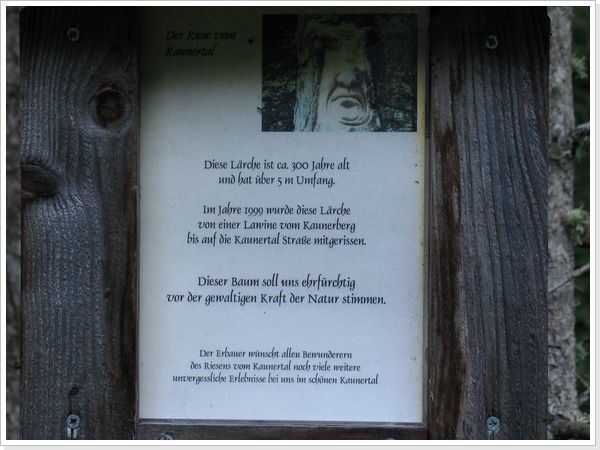 Der Riese vom
Kaunertal
Diese Lärche ist ca. 300 Jahre alt
und hat über 5 m Umfang.
Im Jahre 1999 wurde diese Lärche
von einer Lawine vom Kaunerberg
bis auf die Kaunertal Straße mitgerissen.
Dieser Baum soll uns ehrfürchtig
vor der gewaltigen Kraft der Natur stimmen.
Der Erbauer wünscht allen Bewunderern
des Riesens vom Kaunertal noch viele weitere
unvergessliche Erlebnisse bei uns im schönen Kaunertal